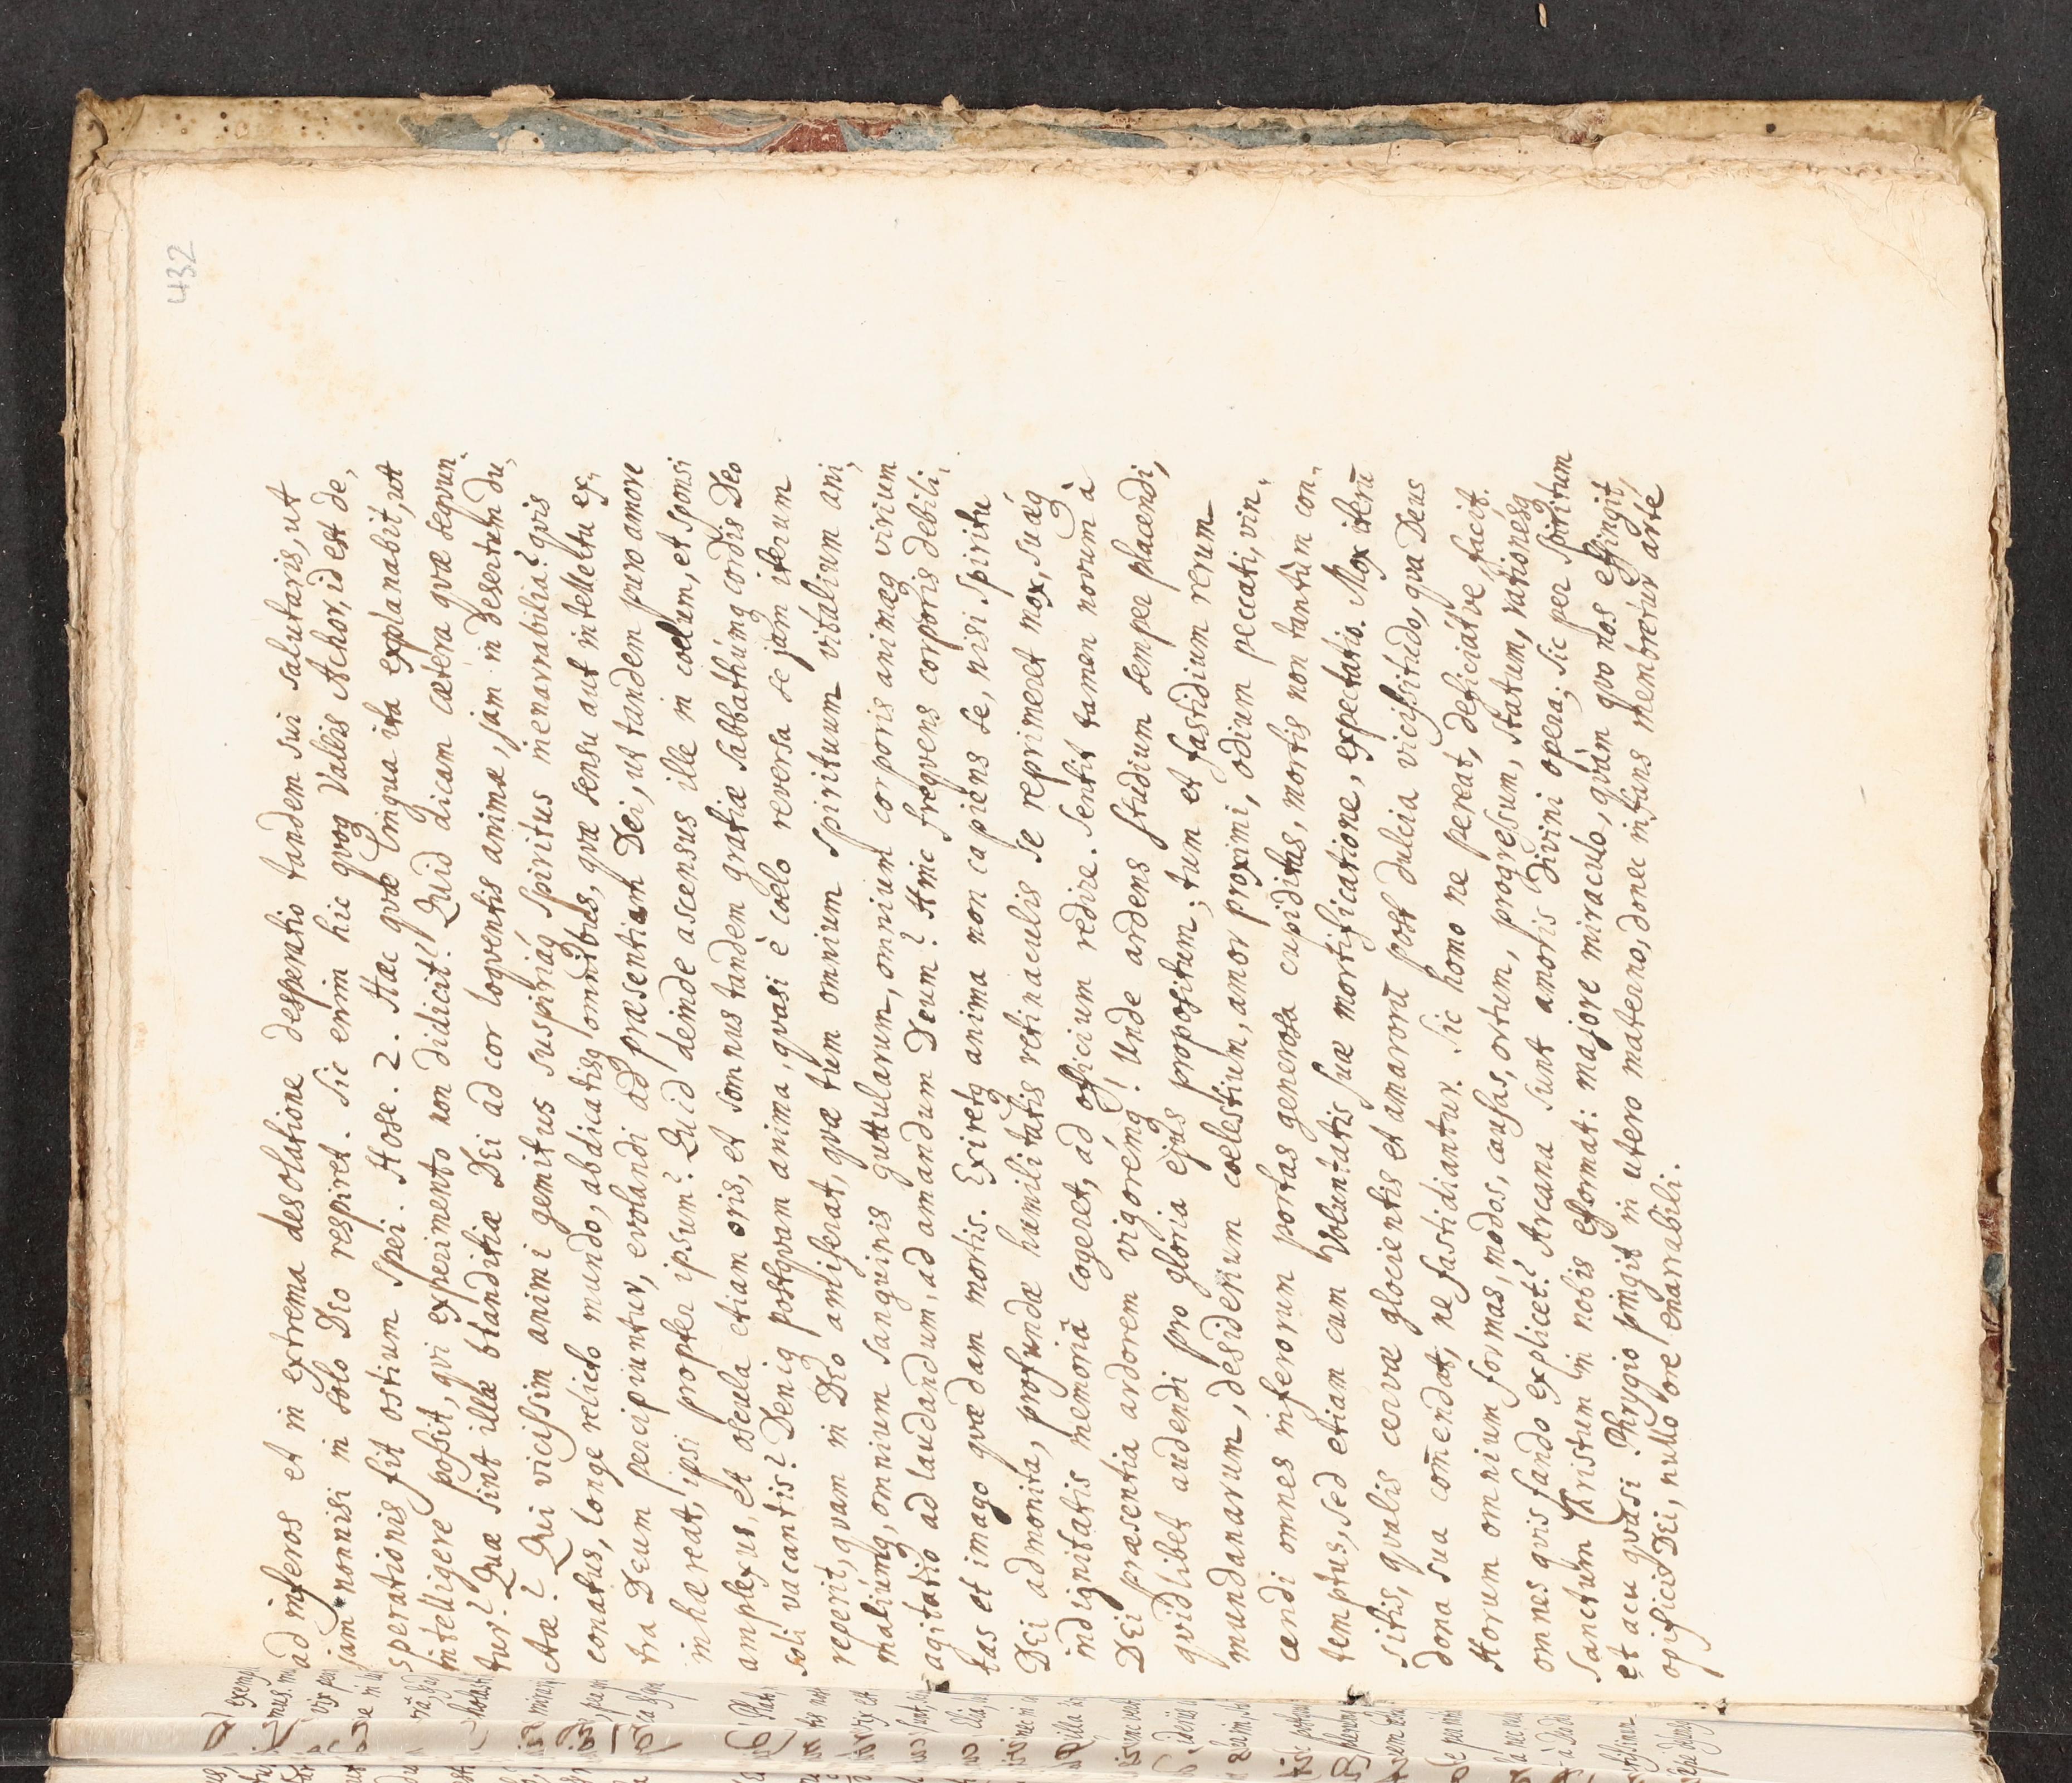 432
ad inferos et in extrema desolatione despentio tandem sui salutaris, ut
jam nonnisi in solo Deo respiret. Sic enim hic quoq Vallis Achor, id est de,
sperationis fit ostium spei. Hose. 2. Hæc quæ lingua ita explanabit, ut
intelligere possit, qui experimento non didicit? Quid dicam cætera quæ sequun,
tur? Quæ sint illæ blanditiæ Dei ad cor loquentis animæ, jam in desertum du,
ctæ? Qui vicissim animi gemitus suspiriáq spiritus inenarrabilia? quis
conatus, longe relicto mundo, abdicatisq omnibus, quæ sensu aut intellectu ex,
tra Deum percipiuntur, evolandi ad præsentiam Dei, ut tandem puro amore
inhæreat, ipsi propter ipsum? Quid deinde ascensus ille in coelum, et sponsi
amplexus, et oscula etiam oris, et somnus tandem gratiæ sabbathúmq cordis Deo
soli vacantis? Deniq postquam anima, quasi è coelo reversa se jam iterum
reperit, quam in Deo amiserat, quæ tum omnium spirituum vitalium ani,
maliúmq, omnium sanguinis guttularum, omnium corporis animæq virium
agitatio ad laudandum, ad amandum Deum? Hinc frequens corporis debili,
tas et imago quædam mortis. Exiretq anima non capiens se, nisi spiritu
Dei admonita, profundæ humilitatis retinaculis se reprimeret mox, suáq
indignitatis memoriã cogeret, ad officium redire. Sentit tamen novum à
Dei præsentia ardorem vigorémq! Unde ardens studium semper placendi,
quidlibet audendi pro gloria ejus propositum; tum et fastidium rerum
mundanarum, desiderium coelestium, amor proximi, odium peccati, vin,
cendi omnes inferorum portas generosa cupiditas, mortis non tantùm con,
temptus, sed etiam cum Voluntatis suæ mortificatione, expectatio. Mox iterũ
sitis, qualis cervæ glocientis et amarorũ post dulcia vicissitudo, qua Deus
dona sua com̃endat, ne fastidiantur. Sic homo ne pereat, deficiátve, facit.
Horum omnium formas, modos, causas, ortum, progressum, statum, rationésq
omnes quis fando explicet? Arcana sunt amoris divini opera; sic per spiritum
Sanctum Christum in nobis efformat: majore miraculo, quàm quo nos effingit,
et acu quasi Phrygio pingit in utero materno, donec infans membretur arte
opificis Dei, nullo ore enarrabili.